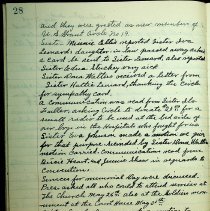 28
and they were greeted as new members of
U.S. Grant Circle No. 19.
Sister Minnie Ellis reported Sister Iva
Leonard's daughter in law passed away asked
a card be sent to Sister Leonard, also reported
Sister Edna Stuckey very sick
Sister Dora Walter received a letter from
Sister Hattie Leonard, thanking the Circle
for sympathy card.
A communication was read from Sister Ida
Fulton asking Circle to donate $1.00 for a
small radio to be used at the bed side of
our boys in the Hospitals who fought for us.
Sister Eva Johnson made a motion we give
for that purpose seconded by Sister Dora Walter
motion carried, communications read from
Dixie Heart and Jennie Shaw in regards to
Convention.
Services for memorial Day were discussed.
Pres. asked all who could to attend services at
the Church May 26th also at the Soldiers mon-
ument at the Court House May 30th